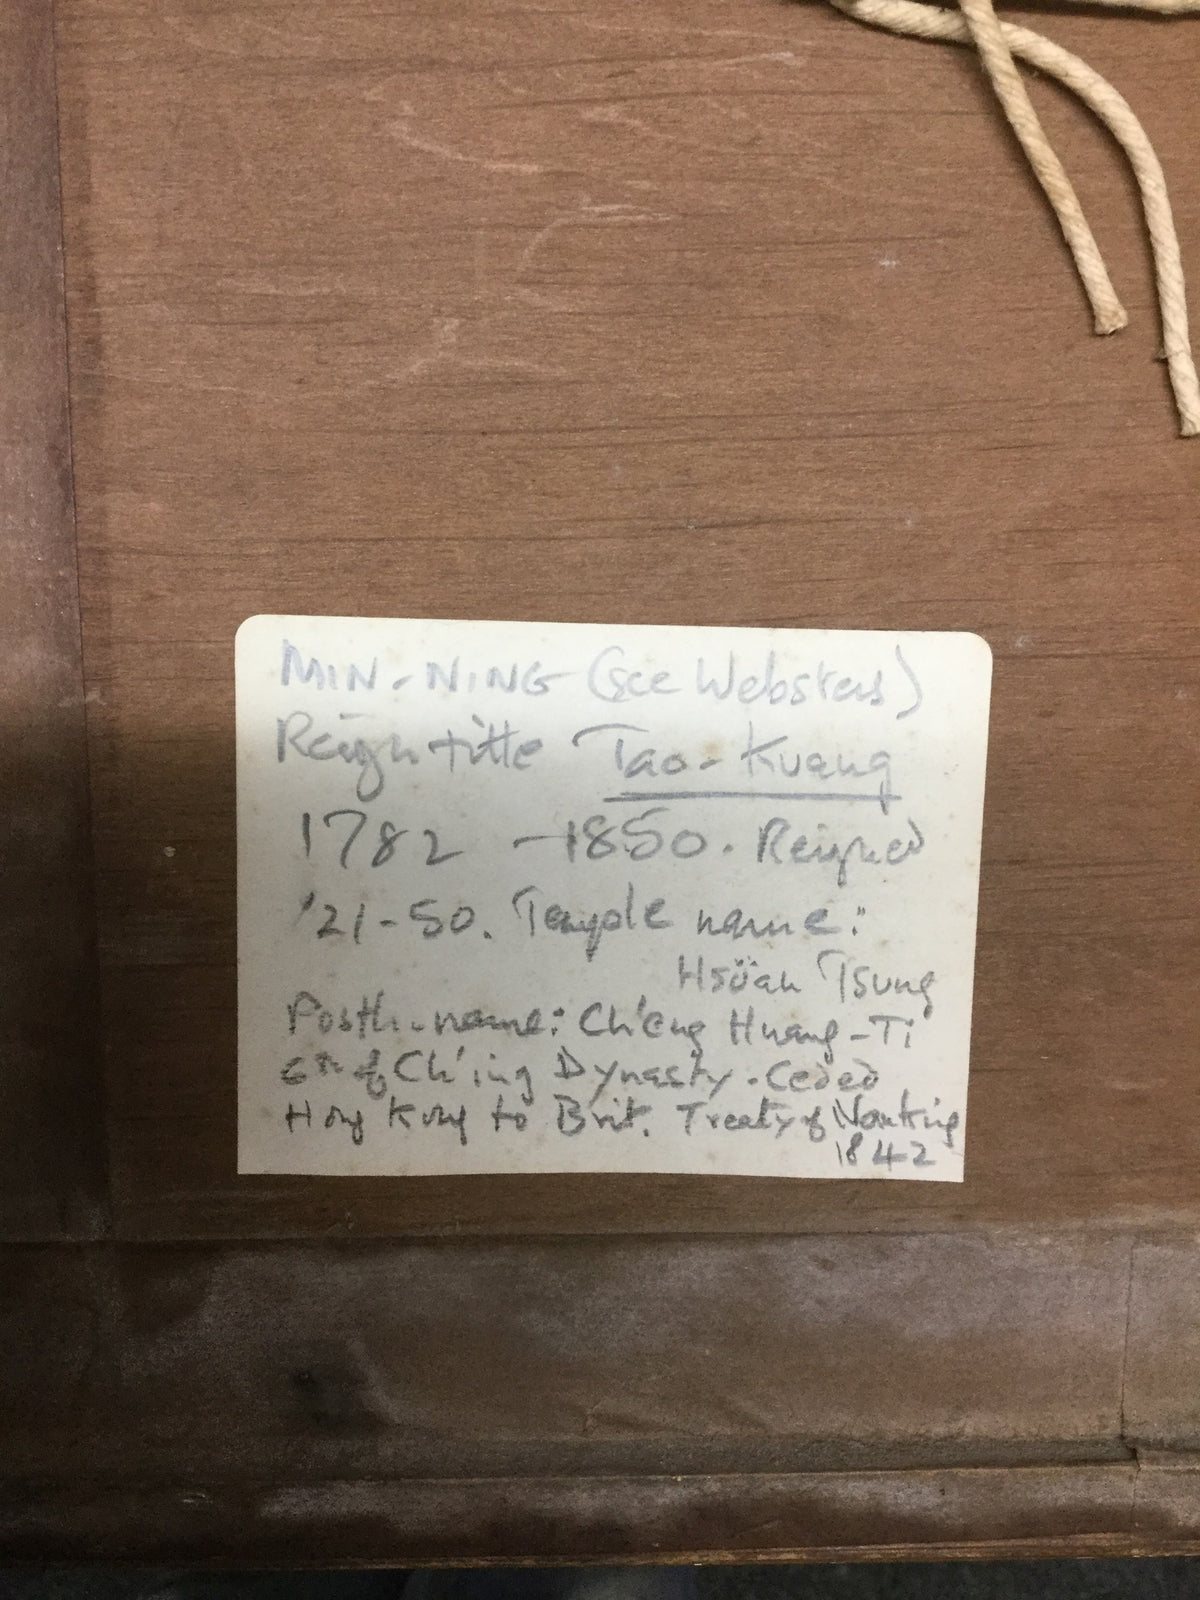 MIN-NING (see Websters)
Reign title Tao-Kuang
1782 - 1850. Reigned
'21-50. Temple name:
Hsüan Tsung
Posth. name: Ch'eng Huang-Ti
6th of Ch'ing Dynasty. Ceded
Hong Kong to Brit. Treaty of Nanking
1842